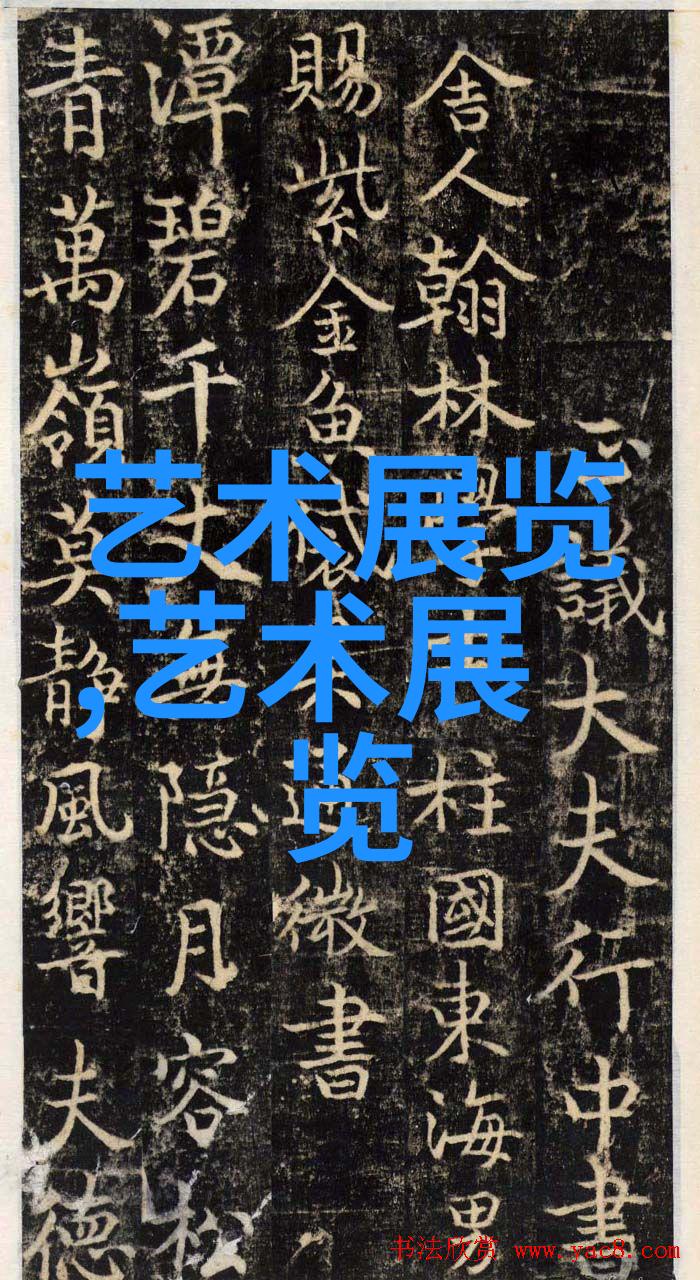 艺术展览
,艺术展
览
議大夫行中書
舍人翰林學柱國東海男
賜紫金魚袋微書
潭碧千丈無隐月容松
青萬嶺莫静風響夫德
书法欣赏 www.yac8.com